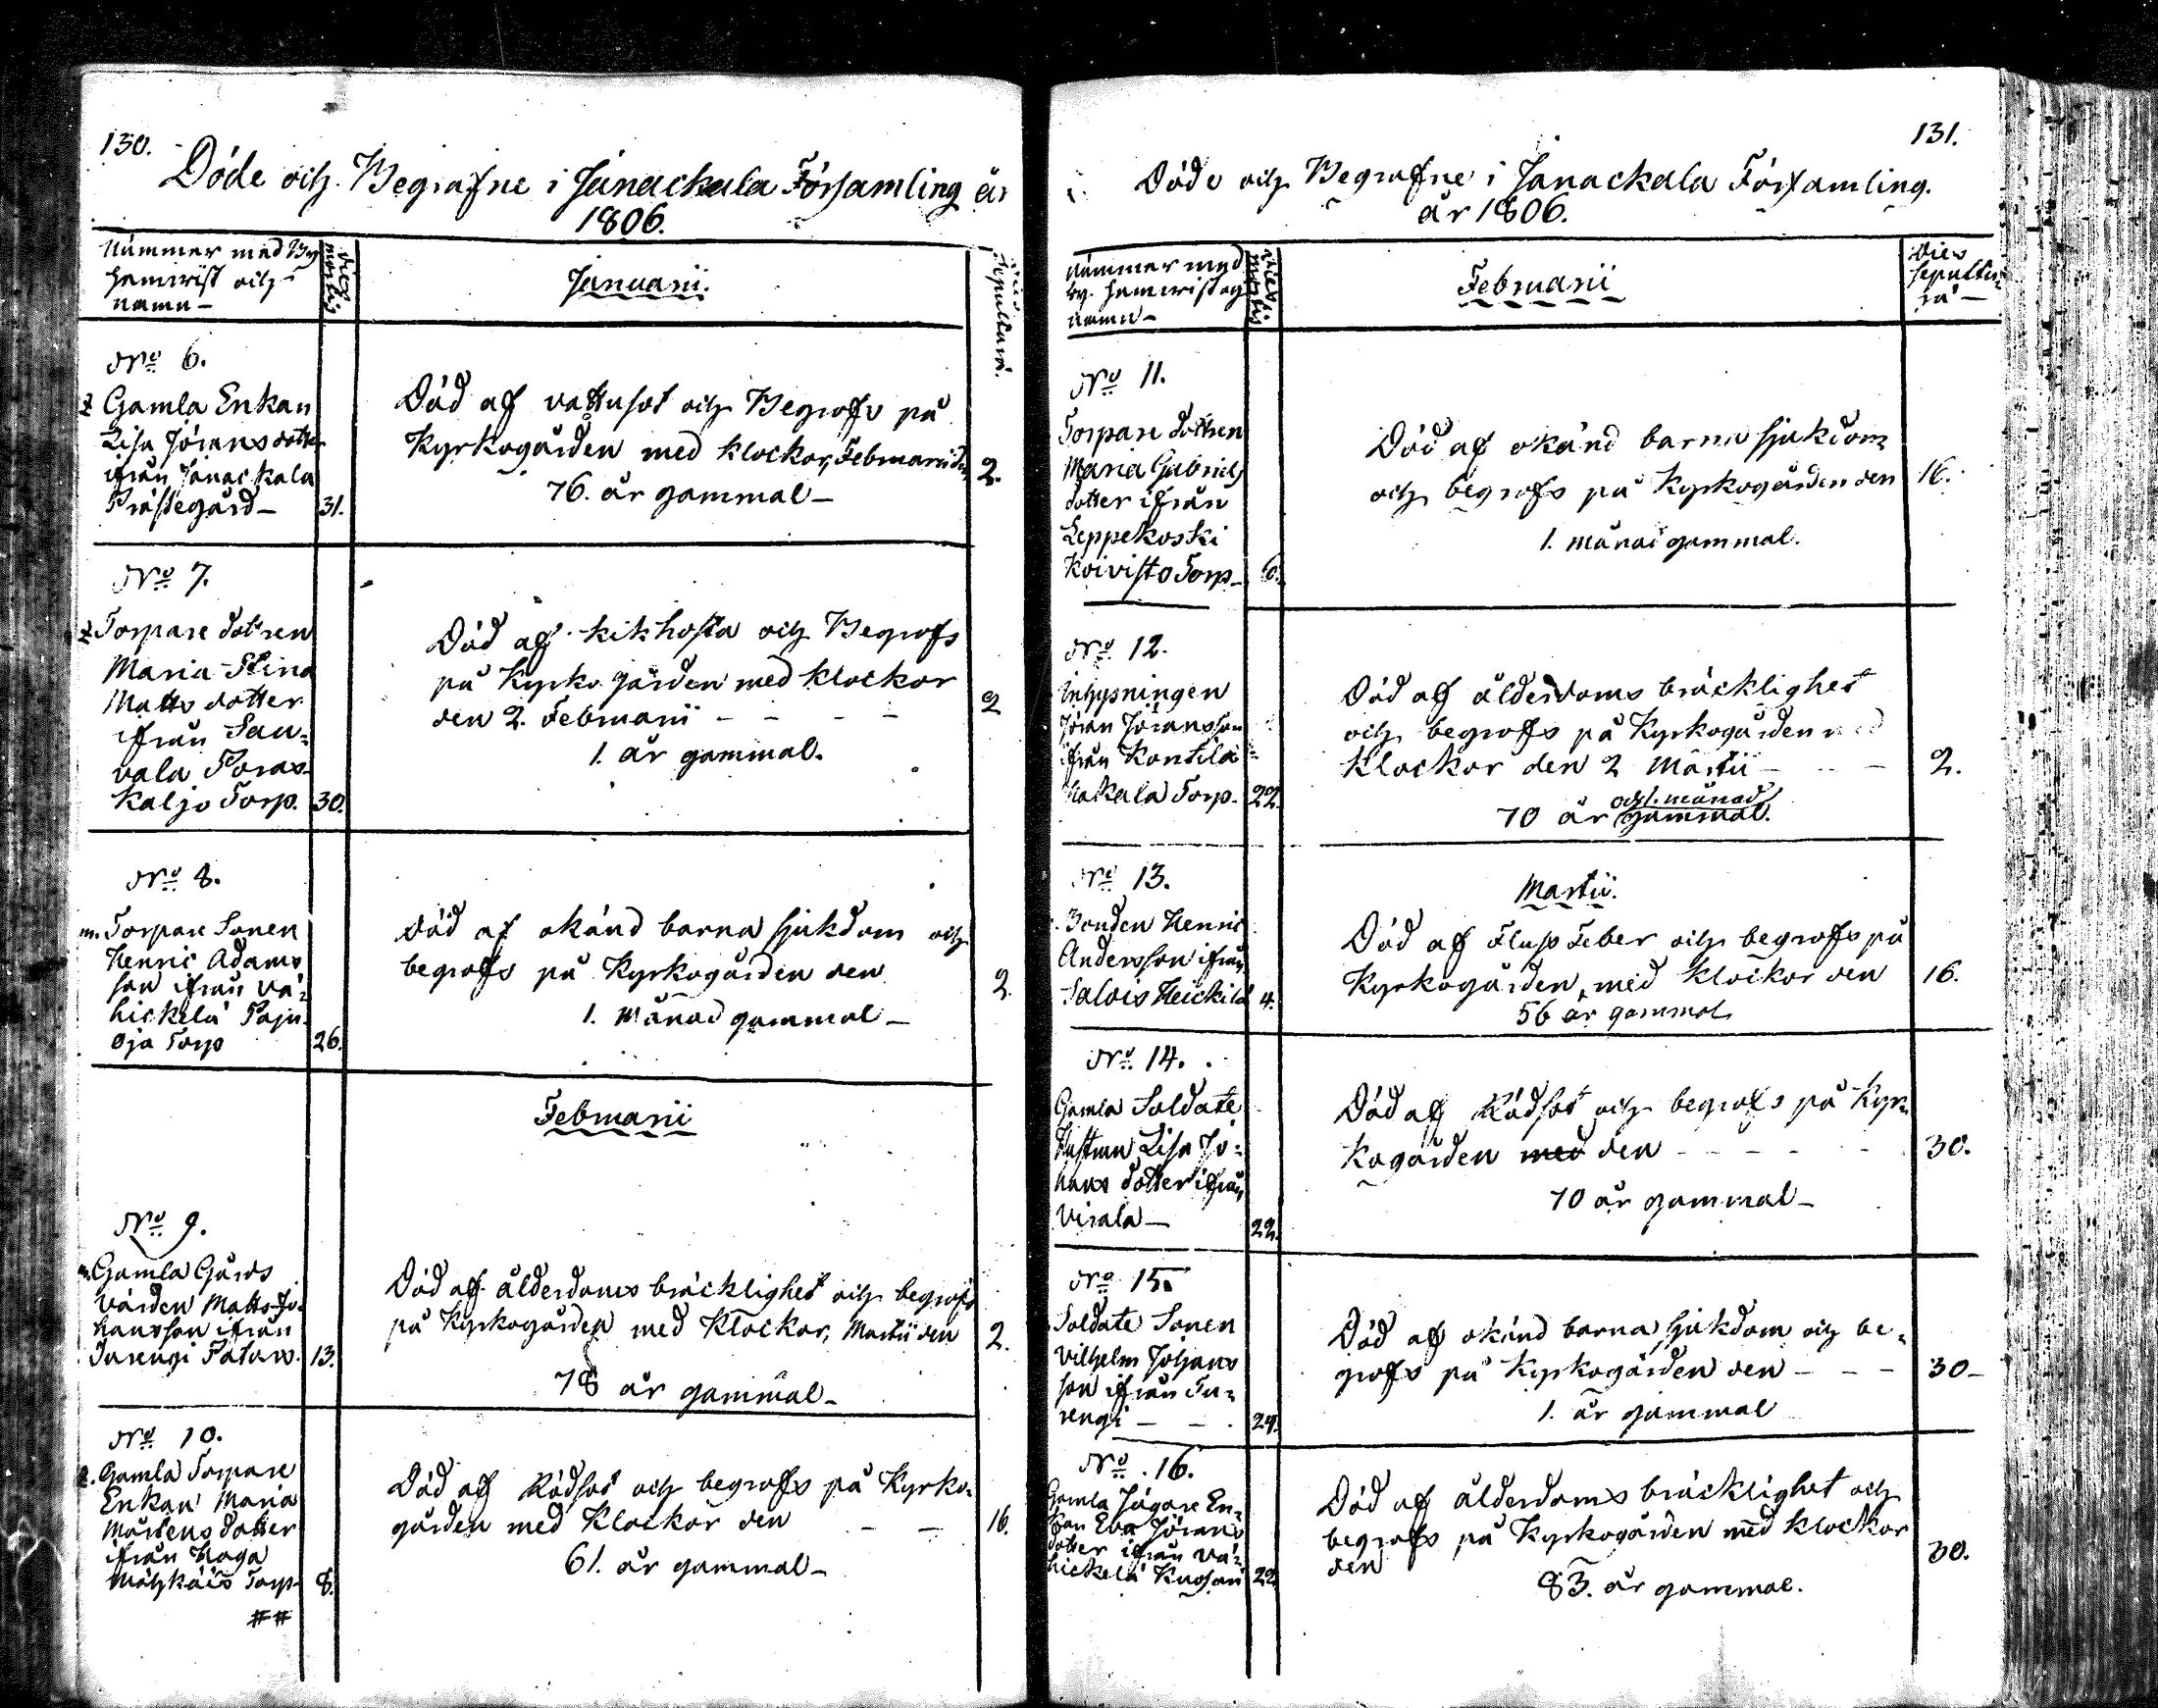 130.
Döde och Begrafne i Janackala Församling år
1806.
Nummer med By
hemvist och
namn –
dies mortis
Januarii.
dies sepulturæ.
No 6.
Gamla Enkan
Lisa Jörans dotter
ifrån Janackala
Prästegård – 31.
Död af vattusot och Begrofs på
Kyrkogården med klockor, Februarii den 2.
76. år gammal –
No 7.
Torpare dottren
Maria Stina
Matts dotter
ifrån Sau-
vala Poras-
kaljo Torp. 30.
Död af kikhosta och Begrofs
på Kyrko gården med klockor
den 2. Februarii – – – – 2
1. år gammal.
No 8.
m. Torpare Sonen
Henric Adams
son ifrån Vä-
hickelä Paju-
oja Torp 26.
död af okänd barna sjukdom och
begrofs på Kyrkogården den 2.
1. Månad gammal –
Februarii
No 9.
m. Gamla Gårds
Värden Matts Jo-
hansson ifrån
Turengi 13.
Död af ålderdoms bräcklighet och begrofs
på Kyrkogården med Klockor, Martii den 2.
78 år gammal –
No 10.
Gamla Torpare
Enkan Maria
Mårtens dotter
ifrån Haga
Torp 8.
##
Död af Rödsot och begrofs på Kyrko-
gården med Klockor den – – 16.
61. år gammal –
131.
Döde och Begrafne i Janackala Församling.
år 1806.
Nummer med
by. hemvist och
namn –
dies mortis
Februarii
Dies
sepultu-
ra –
No 11.
Torpare dottren
Maria Gabriels
dotter ifrån
Leppekoski
Koivisto Torp – 6.
Död af okänd barna sjukdom
och begrofs på Kyrkogården den 16.
1. månad gammal.
No 12.
Inhysningen
Jöran Jöransson
ifrån Kontila
Torp. 22.
Död af ålderdoms bräcklighet
och begrofs på Kyrkogården med
Klockor den 2 Martii – – – 2.
och 1. månad
70 år gammal.
No 13.
Bonden Henric
Andersson ifrån
Salois Heickilä 4.
Martii.
Död af Fluss Feber och begrofs på
Kyrkogården, med klockor den 16.
56 år gammal
No 14.
Gamla Soldate
Hustrun Lisa Jo-
hans dotter ifrån
Virala – 22.
Död af Rödsot och begrofs på Kyr-
kogården med den – – – – – 30.
70 år gammal –
No 15.
Soldate Sonen
Vilhelm Johans
son ifrån Tu-
rengi – – 24.
Död af okänd barna sjukdom och be-
grofs på Kyrkogården den – – – 30 –
1. år gammal
No 16.
Gamla Jägare En-
kan Eva Jörans
dotter ifrån Vä-
hickelä 22
Död af ålderdoms bräcklighet och
begrofs på Kyrkogården med klockor
den 30.
83. år gammal.